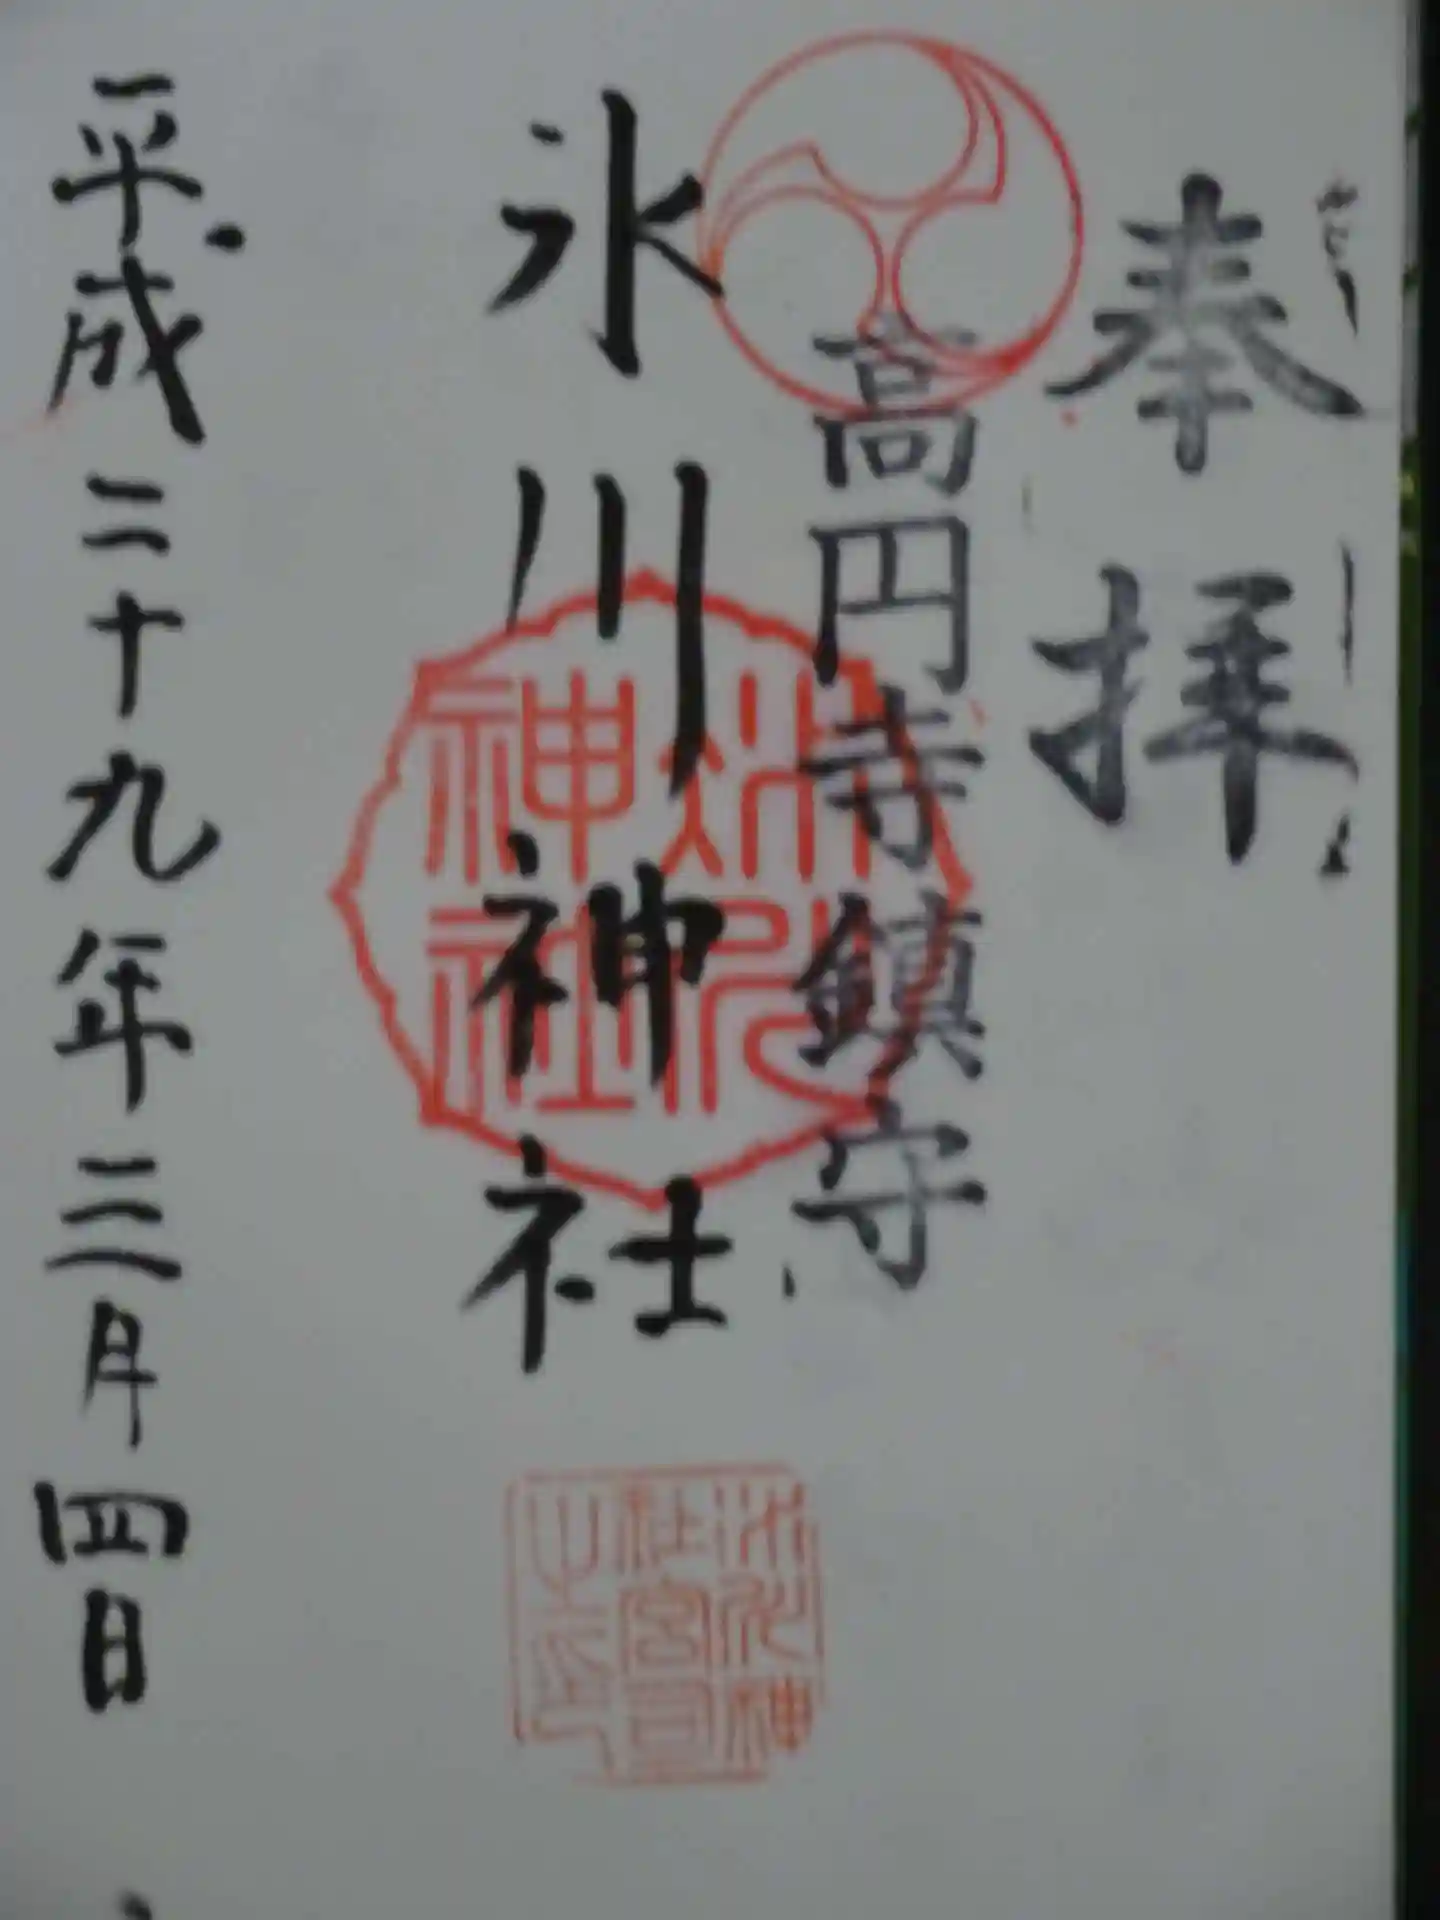 奉拝
高円寺鎮守
氷川神社
氷川神社
氷川神社宮司之印
平成二十九年三月四日